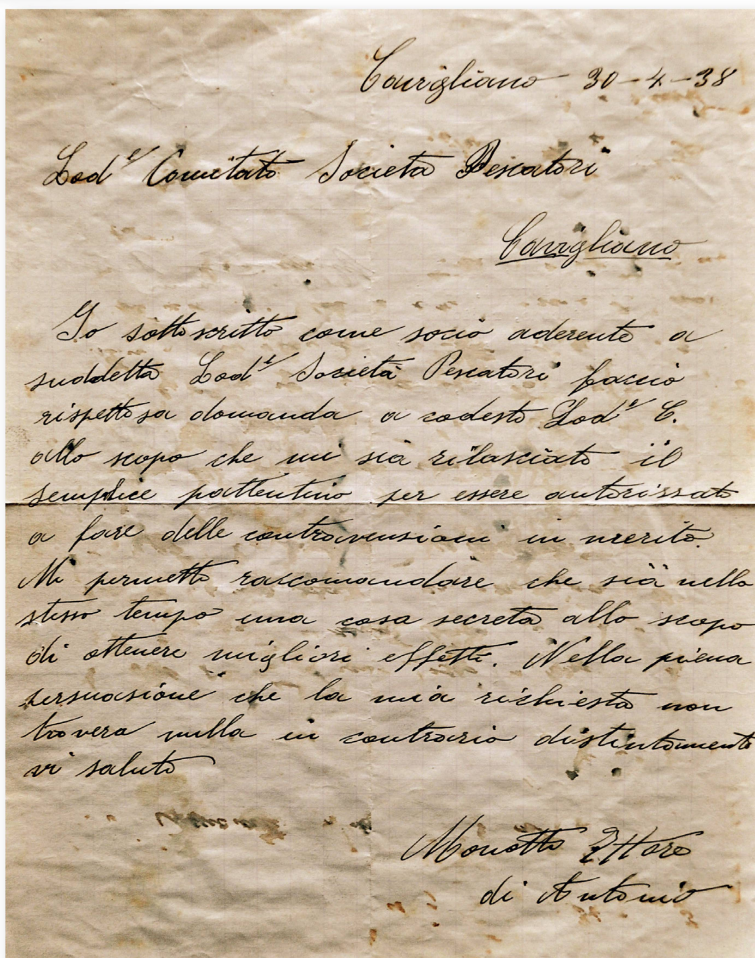 Cavigliano 30-4-38
Lod.e Comitato Società Pescatori
Cavigliano
Io sottoscritto come socio aderente a
suddetta Lod.e Società Pescatori faccio
rispettosa domanda a codesto Lod.e C.
allo scopo che mi sia rilasciato il
semplice pattentino per essere autorissato
a fare delle contravensioni in merito.
Mi permetto rascomandare che sia nello
stesso tempo una cosa secreta allo scopo
di ottenere migliori effetti. Nella piena
persuasione che la mia richiesta non
trovera nulla in contrario distintamente
vi saluto
Monotti Ettore
di Antonio